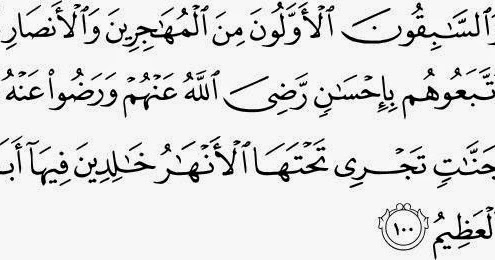 وَٱلسَّـٰبِقُونَ ٱلْأَوَّلُونَ مِنَ ٱلْمُهَـٰجِرِينَ وَٱلْأَنصَارِ
تَّبَعُوهُم بِإِحْسَـٰنٍ رَّضِىَ ٱللَّهُ عَنْهُمْ وَرَضُوا۟ عَنْهُ
جَنَّـٰتٍ تَجْرِى تَحْتَهَا ٱلْأَنْهَـٰرُ خَـٰلِدِينَ فِيهَآ أَبَ
لْعَظِيمُ ١٠٠